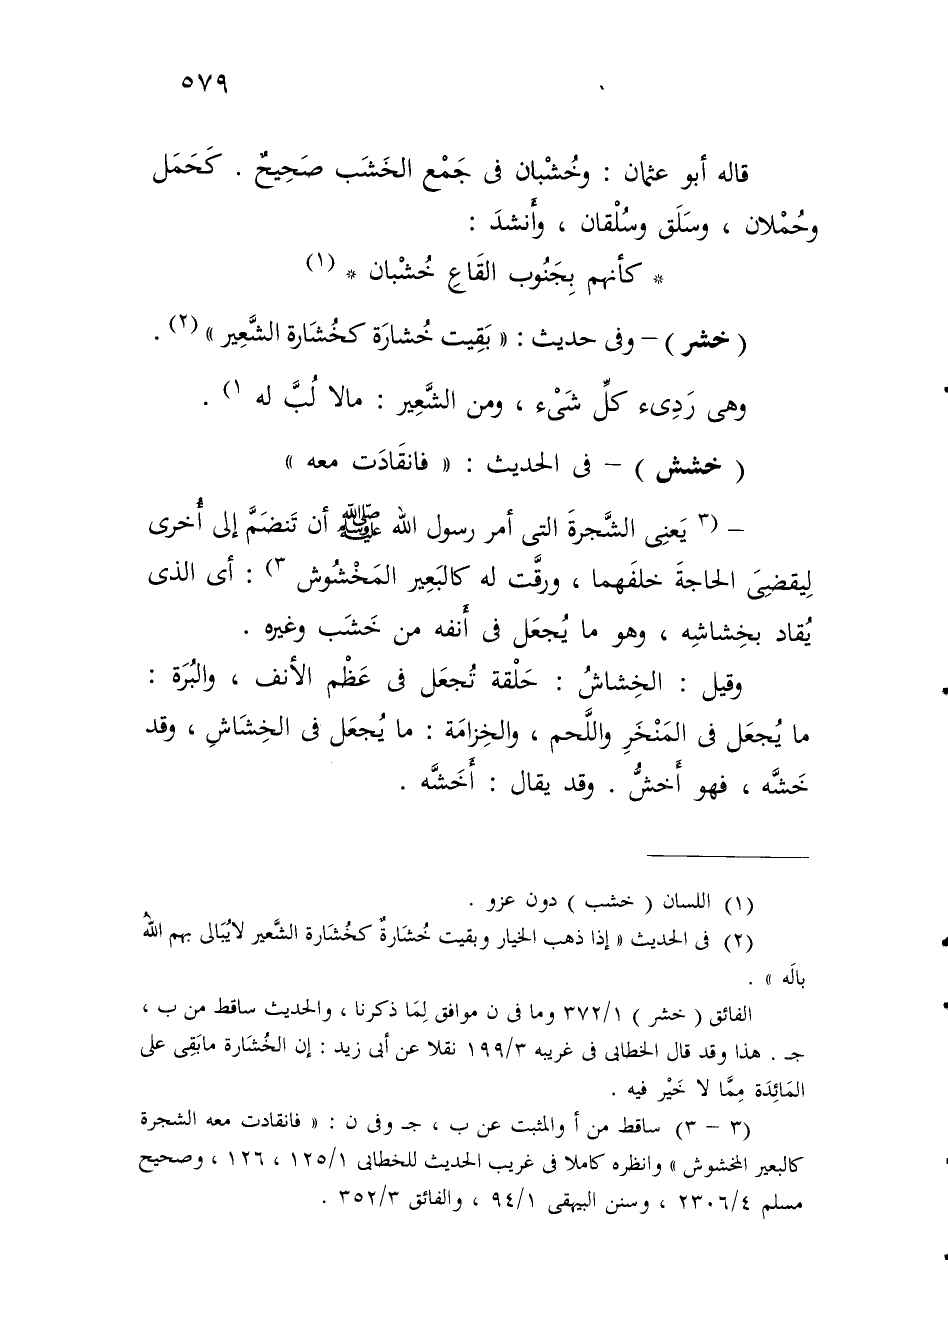 ٥٧٩
قاله أبو عثمان : وخُشْبان فى جَمْع الخَشَب صَحِيحٌ . كَحَمَل
وحُمْلان ، وسَلَق وسُلْقان ، وأَنشدَ :
* كأنهم بِجَنُوب القَاعِ خُشْبان * (١)
( خشر ) – وفى حديث : « بَقِيت خُشارَة كخُشَارة الشَّعِير » (٢) .
وهى رَدِىء كلِّ شَىْء ، ومن الشَّعِير : مالا لُبَّ له ١) .
( خشش ) – فى الحديث : « فانقَادَت معه »
– (٣ يَعنِى الشَّجرةَ التى أمر رسول الله ﷺ أن تَنضَمَّ إلى أُخرى
لِيقضِىَ الحاجةَ خلفَهما ، ورقَّت له كالبَعِير المَخْشُوش ٣) : أى الذى
يُقاد بخِشاشِه ، وهو ما يُجعَل فى أَنفه من خَشَب وغيره .
وقيل : الخِشاشُ : حَلْقة تُجعَل فى عَظْم الأنف ، والبُرَة :
ما يُجعَل فى المَنْخَرِ واللَّحم ، والخِزامَة : ما يُجعَل فى الخِشَاشِ ، وقد
خَشَّه ، فهو أَخشُّ . وقد يقال : أَخَشَّه .
(١) اللسان ( خشب ) دون عزو .
(٢) فى الحديث « إذا ذهب الخيار وبقيت خُشارةٌ كخُشَارة الشَّعير لايُبَالى بهم اللهُ
بالَه » .
الفائق ( خشر ) ٣٧٢/١ وما فى ن موافق لِمَا ذكرنا ، والحديث ساقط من ب ،
جـ . هذا وقد قال الخطابى فى غريبه ١٩٩/٣ نقلا عن أبى زيد : إن الخُشَارة مابَقِى على
المَائِدَة مِمَّا لا خَيْر فيه .
(٣ – ٣) ساقط من أ والمثبت عن ب ، جـ وفى ن : « فانقادت معه الشجرة
كالبعير المخشوش » وانظره كاملا فى غريب الحديث للخطابى ١٢٥/١ ، ١٢٦ ، وصحيح
مسلم ٢٣٠٦/٤ ، وسنن البيهقى ٩٤/١ ، والفائق ٣٥٢/٣ .